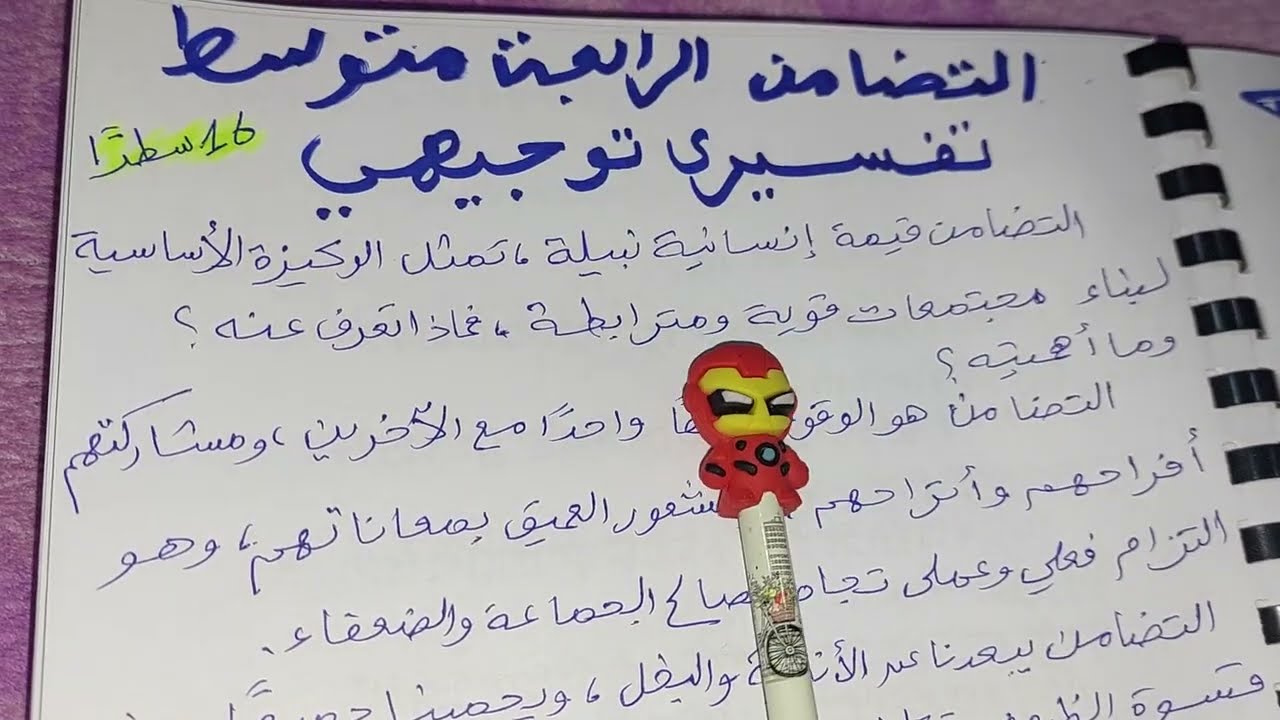 التضامن الرابعة متوسط
تفسيري توجيهي
16 سطرًا
التضامن قيمة إنسانية نبيلة، تمثل الركيزة الأساسية
لبناء مجتمعات قوية ومترابطة، فماذا تعرف عنه؟
وما أهميته؟
التضامن هو الوقوف واحدًا مع الآخرين، ومشاركتهم
أفراحهم وأتراحهم، الشعور العميق بمعاناتهم، وهو
التزام فعلي وعملي تجاه مصالح الجماعة والضعفاء.
التضامن يبعدنا عن والبخل،
قسوة